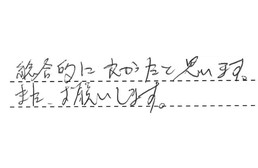 総合的に良かったと思います。
また、お願いします。